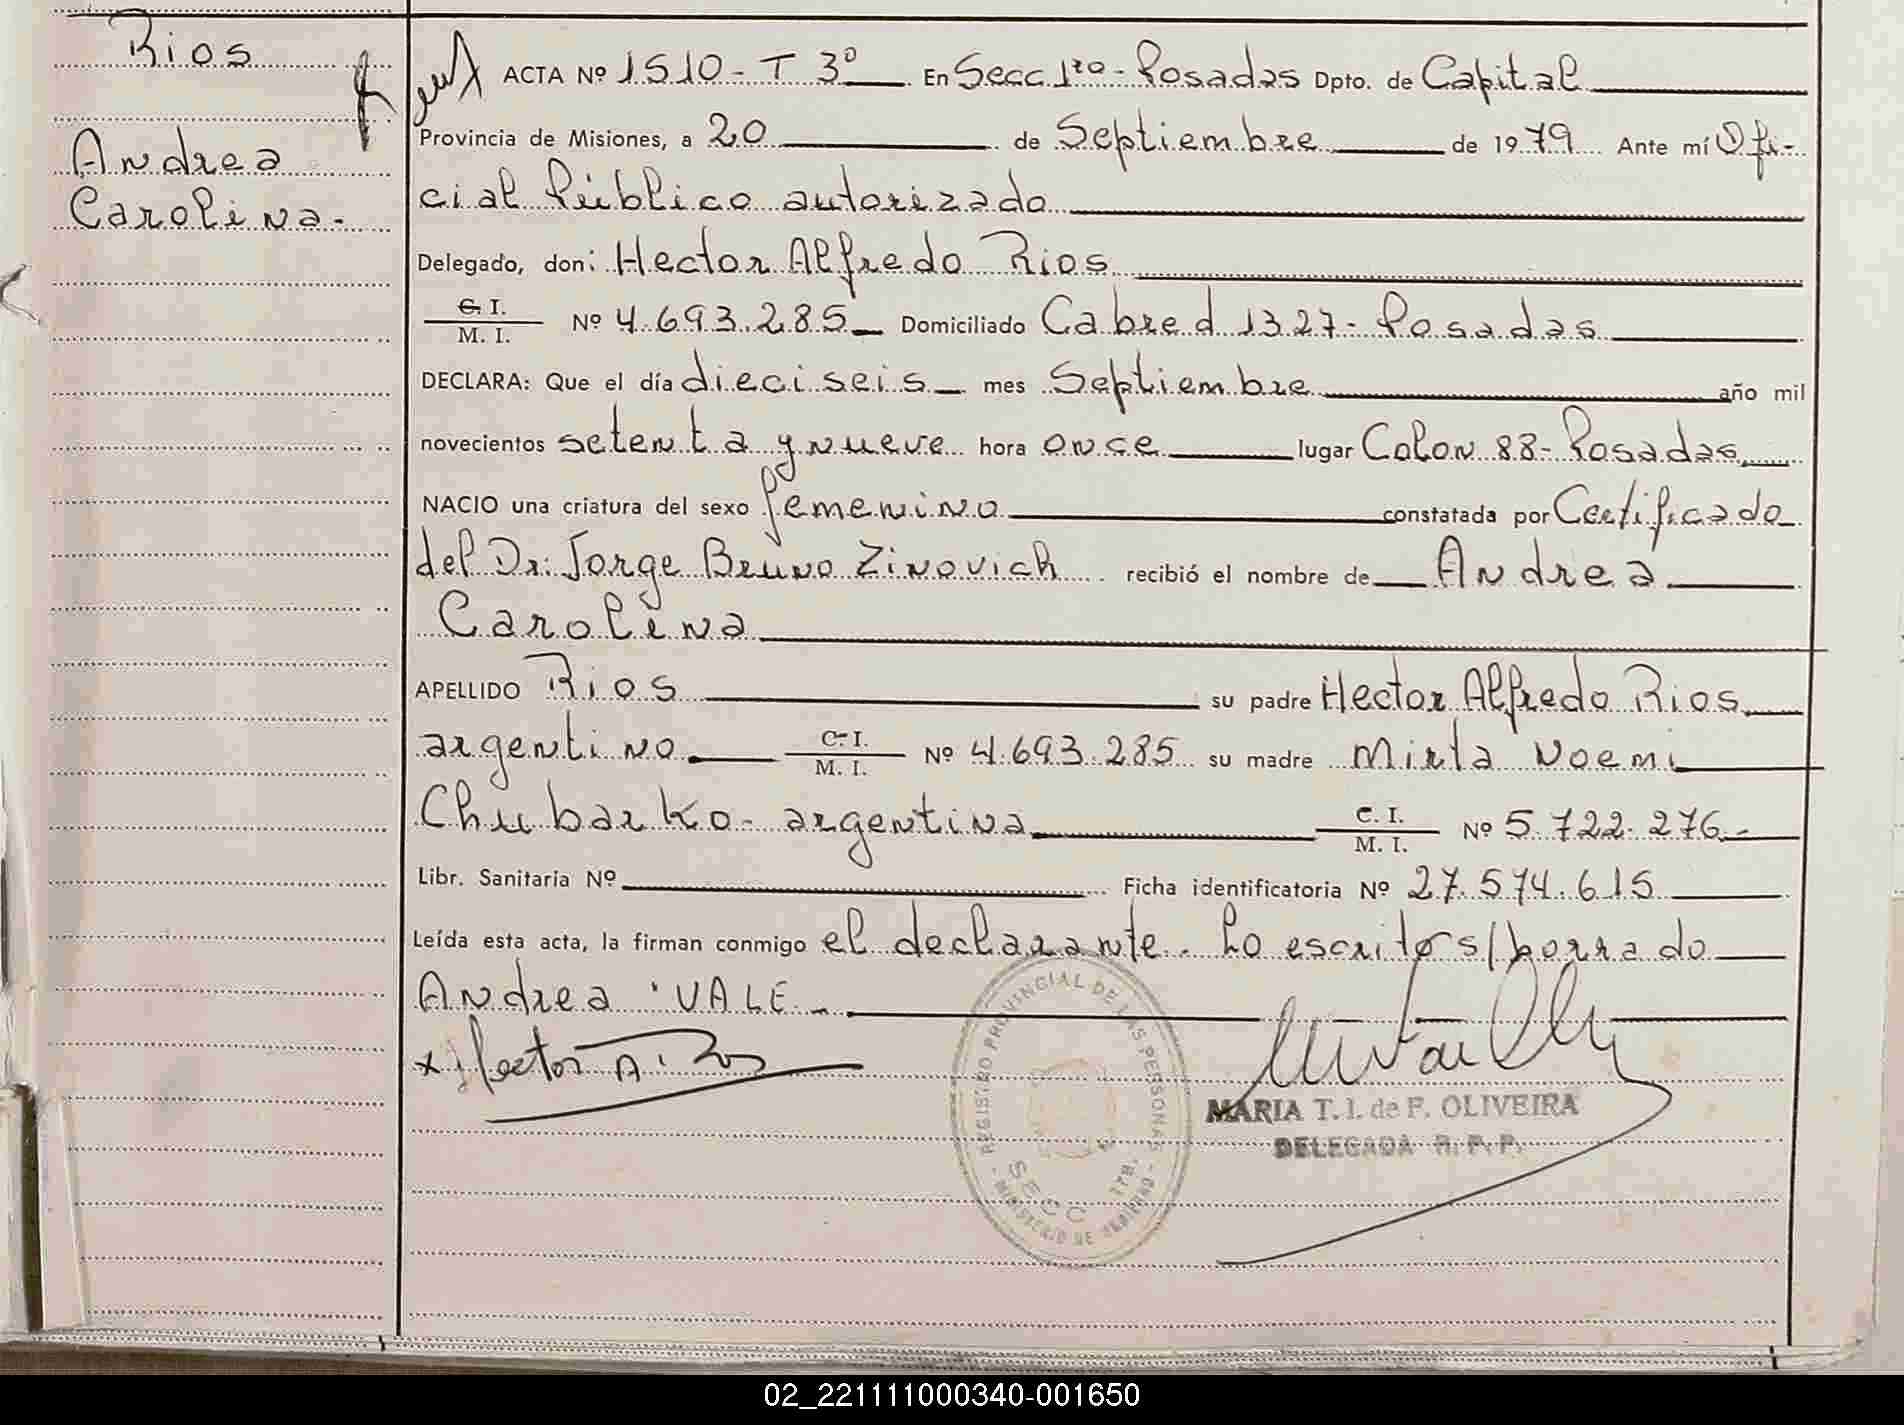 Rios
Andrea
Carolina-
ACTA Nº 1510- T 3º En Secc. 1ra- Posadas Dpto. de Capital
Provincia de Misiones, a 20 de Septiembre de 1979 Ante mí Ofi-
cial Público autorizado
Delegado, don: Hector Alfredo Rios
C. I. / M. I. Nº 4.693.285 Domiciliado Cabred 1327- Posadas
DECLARA: Que el día dieciseis mes Septiembre año mil
novecientos setenta y nueve hora once lugar Colon 88- Posadas
NACIO una criatura del sexo femenino constatada por Certificado
del Dr. Jorge Bruno Zinovich recibió el nombre de Andrea
Carolina
APELLIDO Rios su padre Hector Alfredo Rios
argentino C. I. / M. I. Nº 4.693.285 su madre Mirta Noemi
Chubarko- argentina C. I. / M. I. Nº 5.722.276.-
Libr. Sanitaria Nº Ficha identificatoria Nº 27.574.615
Leída esta acta, la firman conmigo el declarante. Lo escrito s/borrado
Andrea "VALE
x Hector A. Rios
REGISTRO PROVINCIAL DE LAS PERSONAS - MINISTERIO DE GOBIERNO -
SECC
MARIA T. I. de F. OLIVEIRA
DELEGADA R. P. P.
02_221111000340-001650